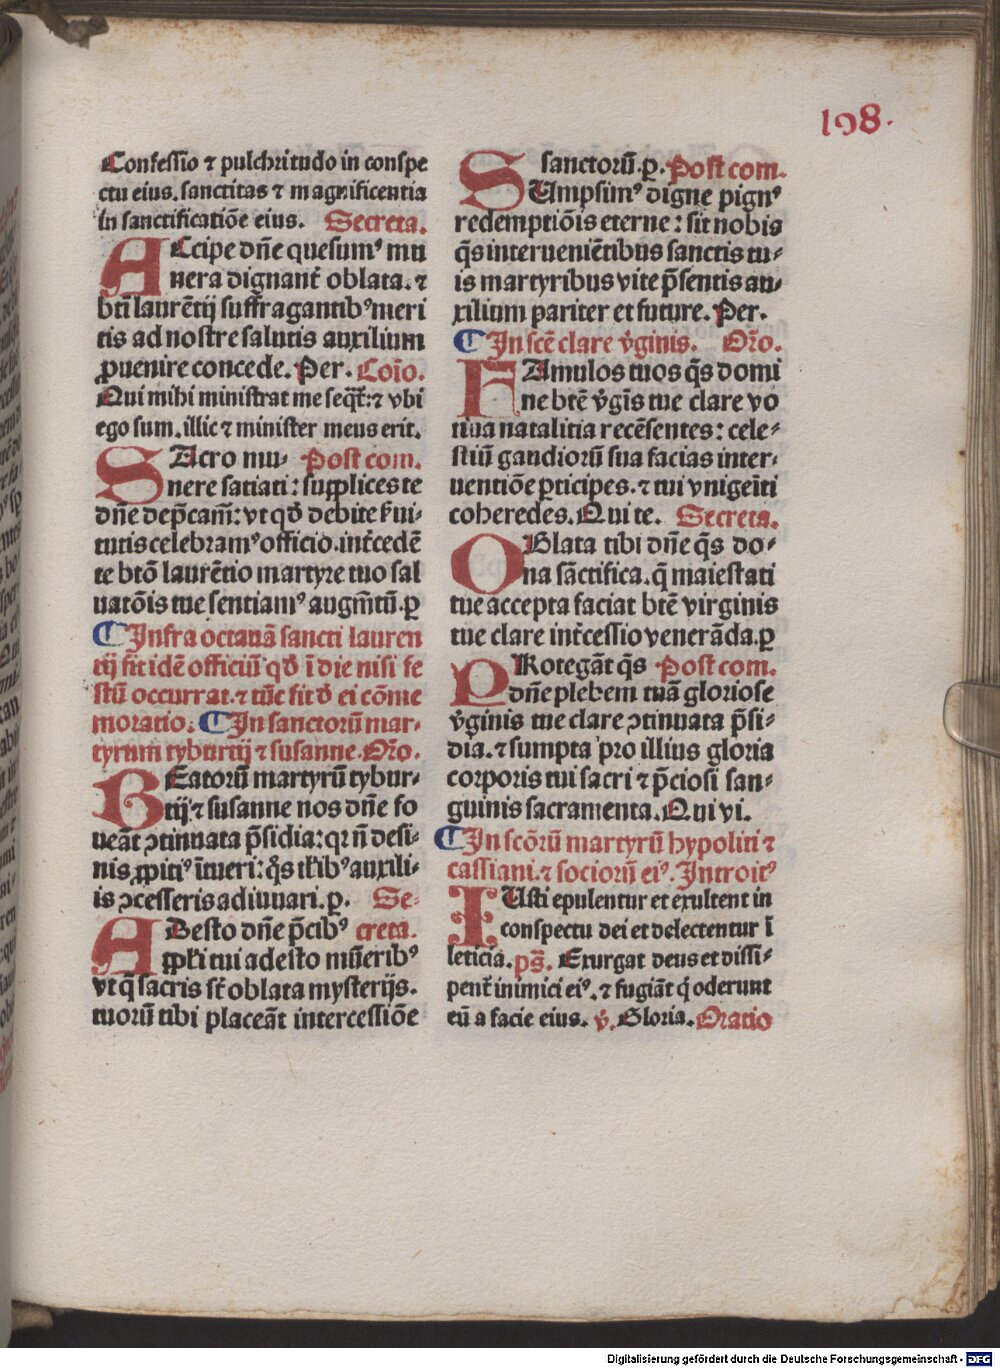 198.
Confessio ⁊ pulchritudo in conspe
ctu eius. sanctitas ⁊ magnificentia
in sanctificatiōe eius. Secreta.
ACcipe dn̄e quesumꝰ mu
nera dignant̄ oblata. ⁊
bt̄i laurētij suffragantibꝰ meri
tis ad nostre salutis auxilium
ꝓuenire concede. Per. Cōio.
Qui mihi ministrat me seq̄t̄: ⁊ vbi
ego sum. illic ⁊ minister meus erit.
SAcro mu- Post com.
nere satiati: supplices te
dn̄e dep̄cam̄: vt qd̄ debite ẜui-
tutis celebramꝰ officio. int̄cedē
te btō laurētio martyre tuo sal
uatōis tue sentiamꝰ augm̄tū. ꝑ
¶ Infra octauā sancti lauren
tij fit idē officiū qd̄ ī die nisi fe
stū occurrat. ⁊ tūc fit d̄ ei cōme
moratio. ¶ In sanctorū mar-
tyrum tyburtij ⁊ susanne. Or̄o.
BEatorū martyrū tybur-
tij ⁊ susanne nos dn̄e fo
ueāt ꝯtinuata p̄sidia: qr n̄ desi-
nis ꝓpitiꝰ ītueri: q̄s tl̄ibꝰ auxili-
is ꝯcesseris adiuuari. ꝑ. Se-
ADesto dn̄e p̄cibꝰ creta.
ppl̄i tui adesto mūeribꝰ
vt q̄ sacris st̄ oblata mysterijs.
tuorū tibi placeāt intercessiōe
sanctorū. ꝑ. Post com.
SUmpsimꝰ digne pignꝰ
redemptiōis eterne: sit nobis
q̄s interueniētibus sanctis tu-
is martyribus vite p̄sentis au-
xilium pariter et future. Per.
¶ In scē clare v̄ginis. Or̄o.
FAmulos tuos q̄s domi
ne btē v̄gīs tue clare vo
tiua natalitia recēsentes: cele-
stiū gaudiorū sua facias inter-
uentiōe ꝑticipes. ⁊ tui vnigeīti
coheredes. Qui te. Secreta.
OBlata tibi dn̄e q̄s do-
na sāctifica. q̄ maiestati
tue accepta faciat btē virginis
tue clare int̄cessio venerāda. ꝑ
PRotegāt q̄s Post com.
dn̄e plebem tuā gloriose
v̄ginis tue clare ꝯtinuata p̄si-
dia. ⁊ sumpta pro illius gloria
corporis tui sacri ⁊ p̄ciosi san-
guinis sacramenta. Qui vi.
¶ In scōrū martyrū hypoliti ⁊
cassiani. ⁊ sociorū eiꝰ. Introitꝰ
IUsti epulentur et exultent in
conspectu dei et delectentur ī
leticia. ps̄. Exurgat deus et dissi-
pent̄ inimici eiꝰ. ⁊ fugiāt q̇ oderunt
eū a facie eius. ꝟ. Gloria. Oratio
Digitalisierung gefördert durch die Deutsche Forschungsgemeinschaft - DFG